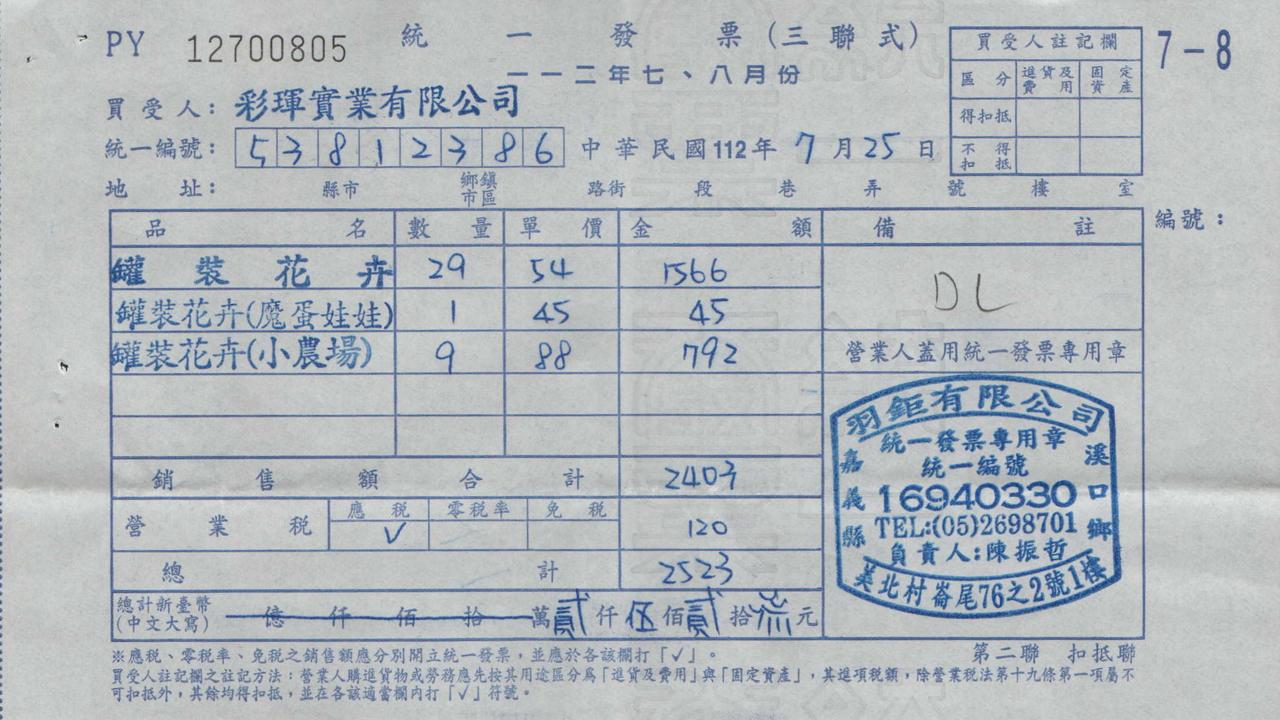 PY 12700805 統一發票(三聯式) 7-8
一一二年七、八月份
買受人註記欄
區分 進貨及費用 固定資產
得扣抵
不得扣抵
買受人：彩琿實業有限公司
統一編號：53812386 中華民國112年7月25日
地址： 縣市 鄉鎮市區 路街 段 巷 弄 號 樓 室
品名 數量 單價 金額 備註 編號：
罐裝花卉 29 54 1566 DL
罐裝花卉(魔蛋娃娃) 1 45 45
罐裝花卉(小農場) 9 88 792 營業人蓋用統一發票專用章
銷售額合計 2403
營業稅 應稅 零稅率 免稅
✓ 120
總計 2523
總計新臺幣(中文大寫) 億仟佰拾萬貳仟伍佰貳拾叁元
羽鉅有限公司
統一發票專用章
統一編號
16940330
TEL:(05)2698701
負責人:陳振哲
嘉義縣 溪口鄉
美北村崙尾76之2號1樓
※應稅、零稅率、免稅之銷售額應分別開立統一發票，並應於各該欄打「✓」。 第二聯 扣抵聯
買受人註記欄之註記方法：營業人購進貨物或勞務應先按其用途區分為「進貨及費用」與「固定資產」，其進項稅額，除營業稅法第十九條第一項屬不
可扣抵外，其餘均得扣抵，並在各該適當欄內打「✓」符號。